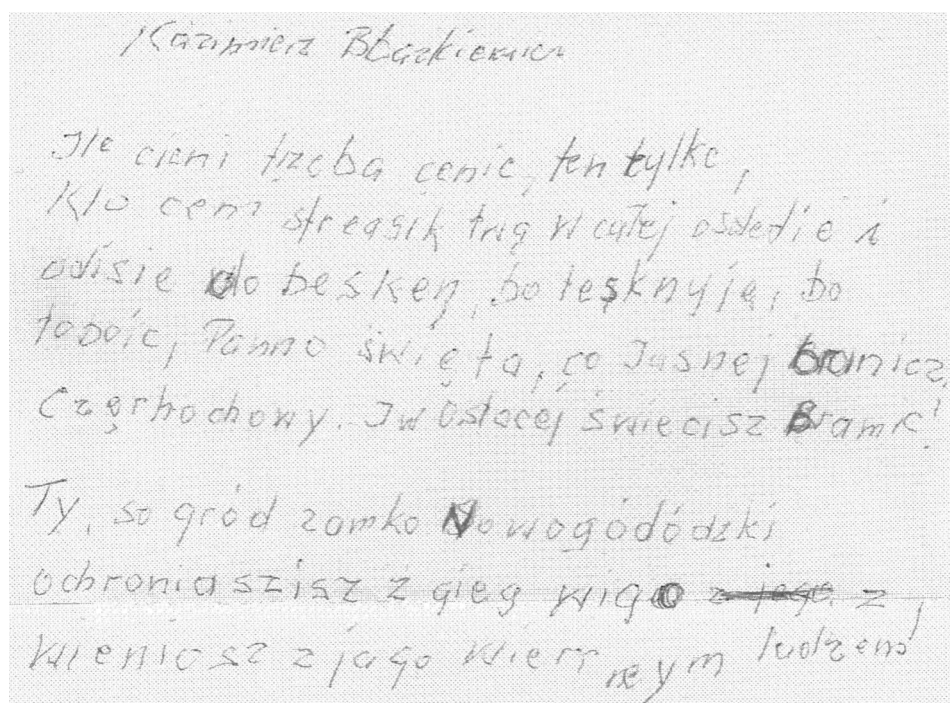 Kazimierz Błaszkiewicz
Ile cieni trzeba cenić, ten tylko,
Kto ceni streasik twą w całej osdedie i
odisie do besken, bo tesknyję, bo
tobóic, Panno święta, co Jasnej branicz
Częrhochowy. I w Ostocej świecisz Bramie!
Ty, so gród zomko Nowogódódzki
ochroniaszisz z gieg wigo z
wieniosz z jago wierr neym ludzem!